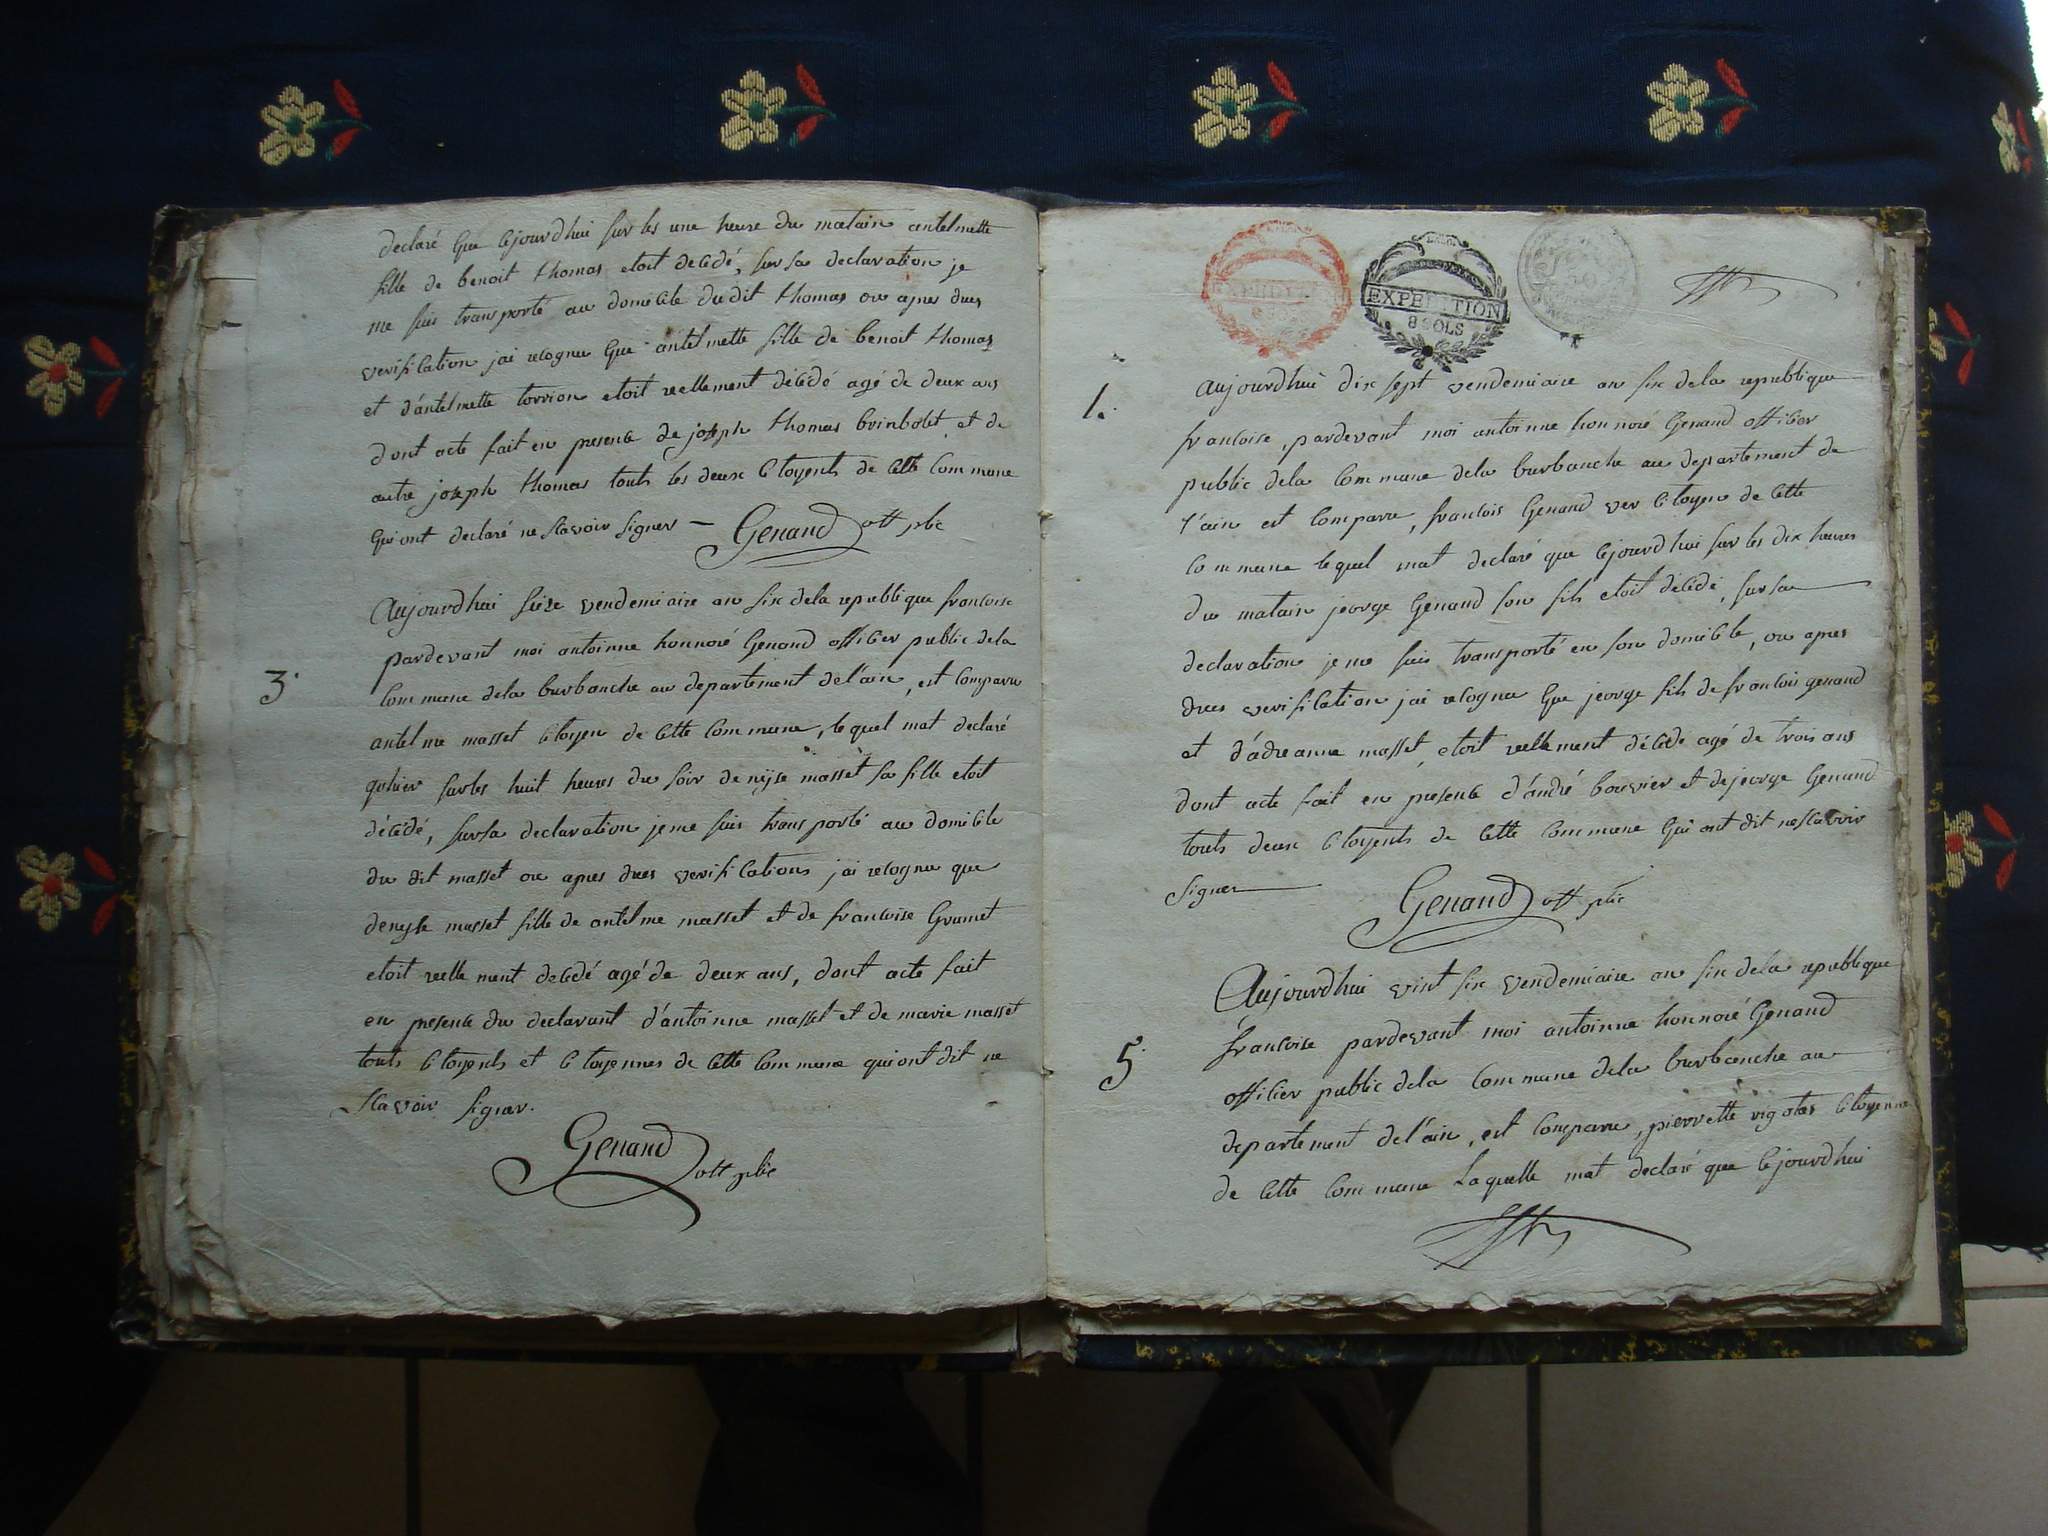 declaré que cejourdhui sur les une heure du matain antelmette
fille de benoit thomas etoit decédé, sur sa declaration je
me suis transporté au domicile dudit thomas ou apres dues
verification jai recognu que antelmette fille de benoit thomas
et d'antelmette torrion etoit reellement décédé agé de deux ans
dont acte fait en presence de joseph thomas brinbolet et de
autre joseph thomas touts les deux citoyents de cette commune
qui ont declaré ne scavoir signer — Genand off plic
3.
Aujourdhui seize vendemiaire an six dela republique francoise
pardevant moi antoinne honnoré Genand officier public dela
commune dela burbanche au departement de l'ain, est comparu
antelme masset citoyen de cette commune, lequel mat declaré
qu'hier sur les huit heures du soir denyse masset sa fille etoit
décédé, sur sa declaration je me suis transporté au domicile
du dit masset ou apres dues verifications jai recognu que
denyse masset fille de antelme masset et de francoise Grumet
etoit reellement decedé agé de deux ans, dont acte fait
en presence du declarant d'antoinne masset et de marie masset
touts citoyents et citoyennes de cette commune qui ont dit ne
scavoir signer.
Genand off plic
EXPEDITION
8 SOLS
Aujourdhui dix sept vendemiaire an six dela republique
francoise, pardevant moi antoinne honnoré Genand officier
public dela commune dela burbanche au departement de
l'ain est comparu, francois Genand ver citoyen de cette
commune lequel mat declaré que cejourdhui sur les dix heures
du matain jeorge Genand son fils etoit décédé, sur sa
declaration je me suis transporté en son domicile, ou apres
dues verification jai recognu que jeorge fils de francois genand
et d'adreanne masset, etoit reellement décédé agé de trois ans
dont acte fait en presence d'andré bouvier et de jeorge Genand
touts deux citoyents de cette commune qui ont dit ne scavoir
signer
Genand off plic
5.
Aujourdhui vint six vendemiaire an six dela republique
francoise pardevant moi antoinne honnoré Genand
officier public dela commune dela burbanche au
departement de l'ain, est comparue, pierrette vigotas citoyenne
de cette commune Laquelle mat declaré que cejourdhui